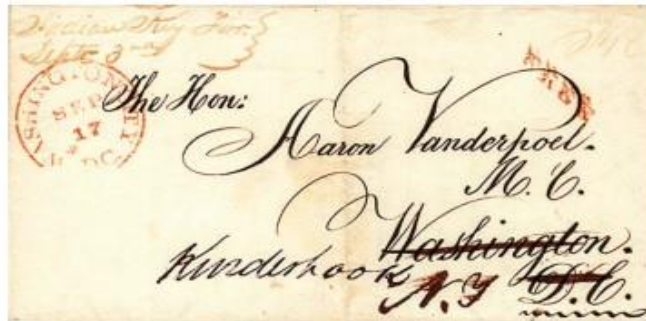 Indian Key Flor.
Sept. 3rd
WASHINGTON CITY
SEP
17
D.C.
FREE
The Hon:
Aaron Vanderpoel.
M.C.
Washington.
Kinderhook
N.Y D.C.